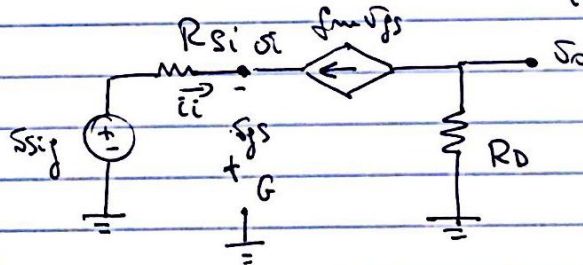 Rsi gmvgs
vi vo
ii
-
vsig + -
vgs
+
G
RD